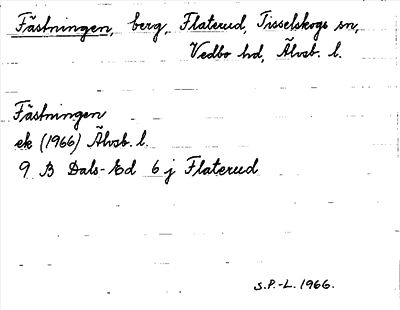 Fästningen, berg, Flaterud, Tisselskogs sn,
Vedbo hd, Älvsb. l.
Fästningen
ek (1966) Älvsb. l.
9 B Dals-Ed 6 j Flaterud
S.P.-L. 1966.